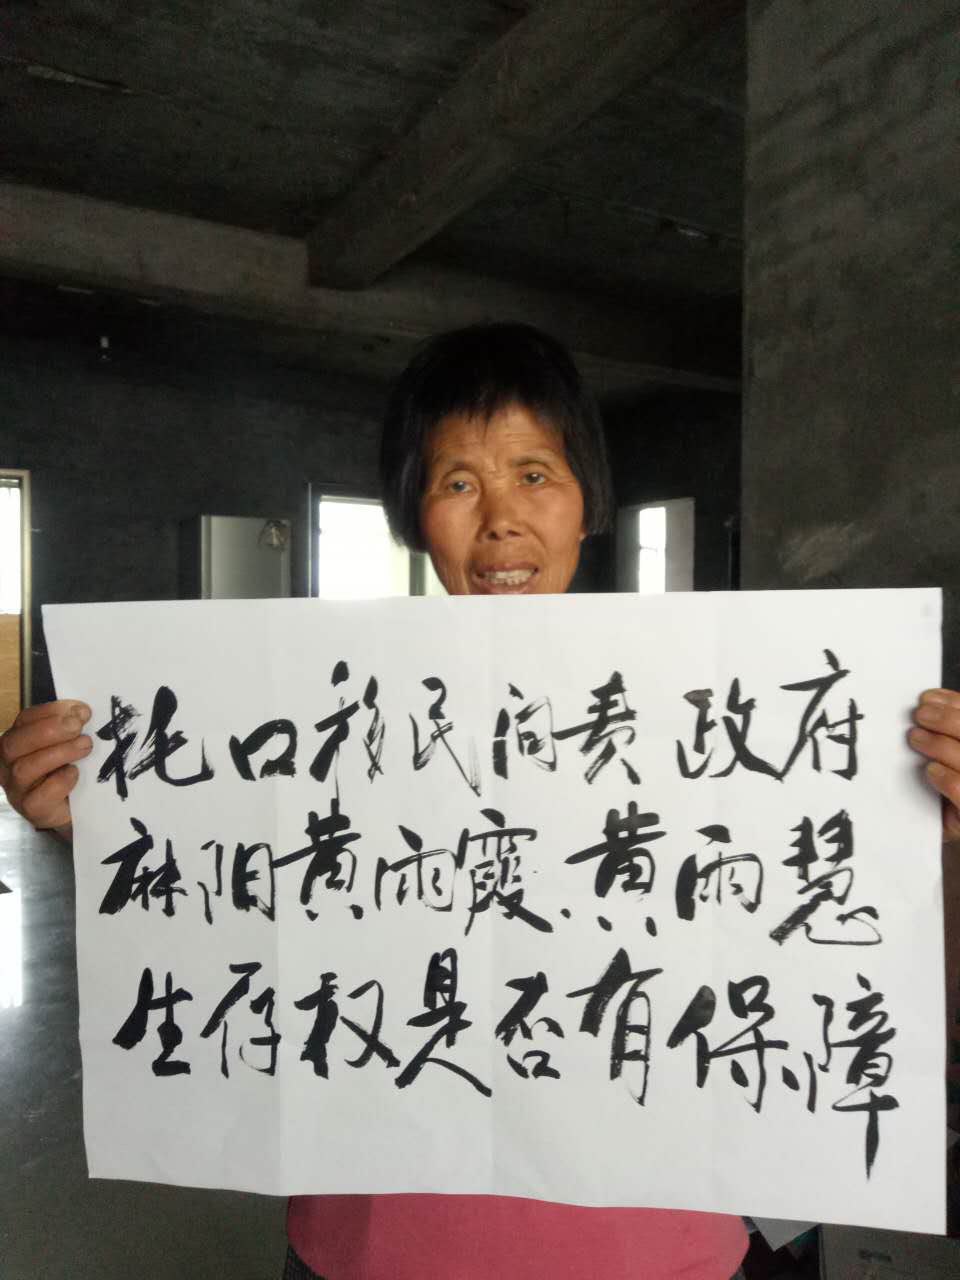 托口移民问责政府
麻阳黄雨霞、黄雨慧
生存权是否有保障